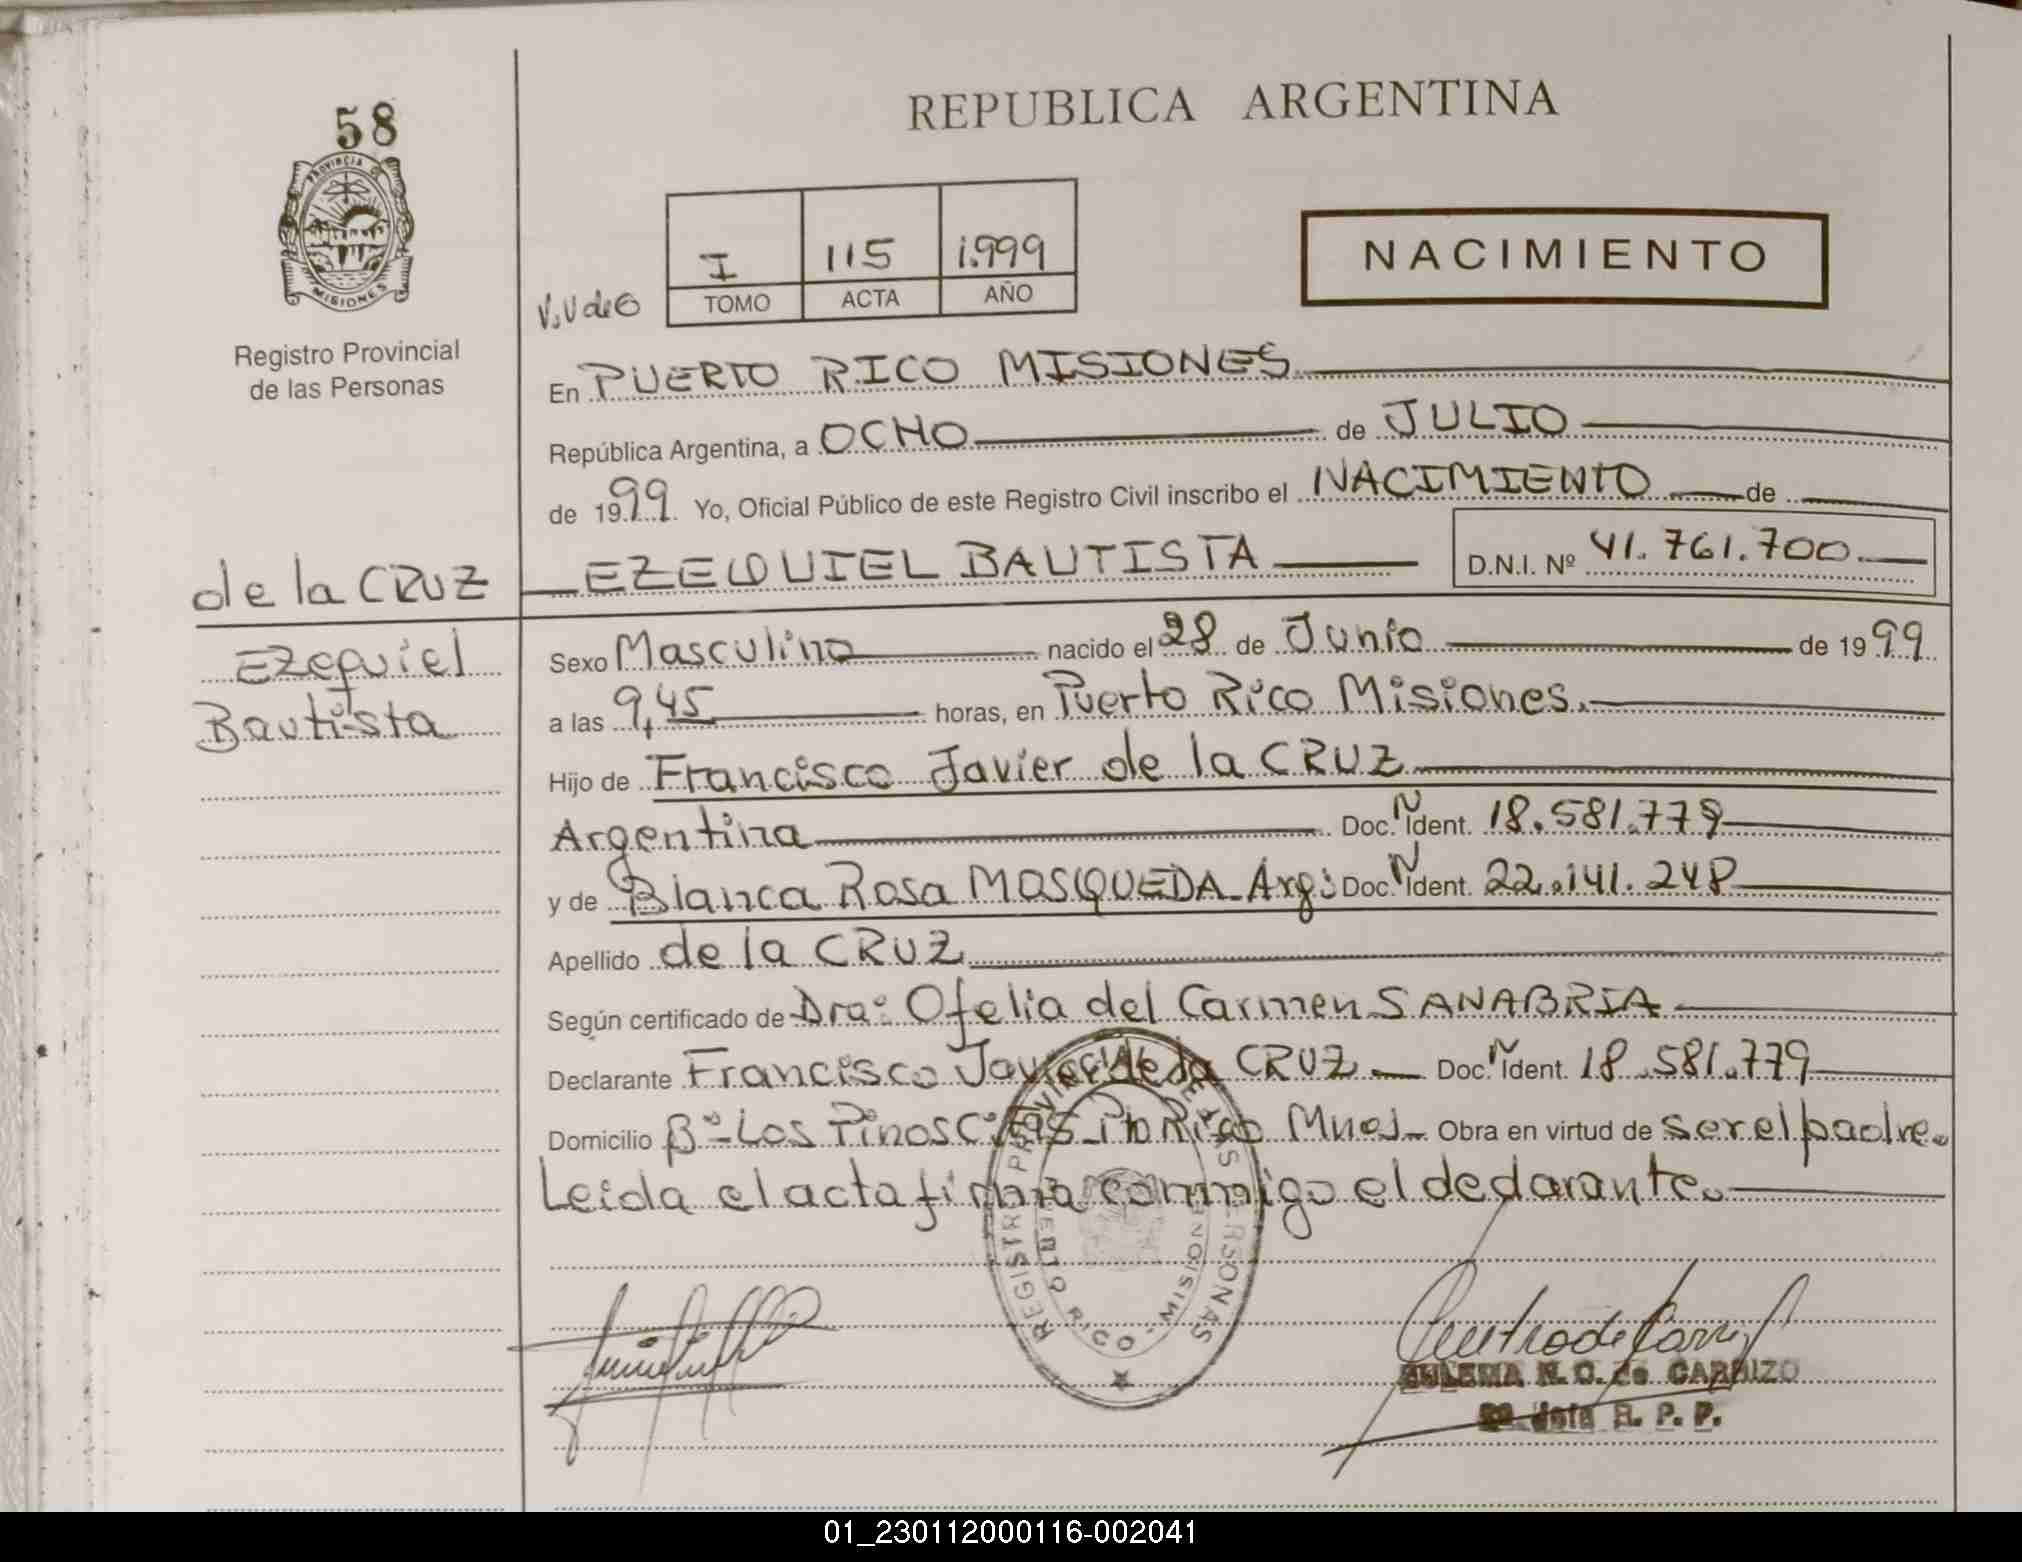 58
PROVINCIA
MISIONES
Registro Provincial
de las Personas
REPUBLICA ARGENTINA
I 115 1.999
TOMO ACTA AÑO
NACIMIENTO
En PUERTO RICO MISIONES
República Argentina, a OCHO de JULIO
de 1999. Yo, Oficial Público de este Registro Civil inscribo el NACIMIENTO de
EZEQUIEL BAUTISTA D.N.I. Nº 41.761.700
de la CRUZ
Ezequiel
Bautista
Sexo Masculino nacido el 28 de Junio de 1999
a las 9,45 horas, en Puerto Rico Misiones.
Hijo de Francisco Javier de la CRUZ
Argentina Doc. N Ident. 18.581.779
y de Blanca Rosa MOSQUEDA Arg: Doc. N Ident. 22.141.248
Apellido de la CRUZ
Según certificado de Dra: Ofelia del Carmen SANABRIA
Declarante Francisco Javier de la CRUZ Doc. N Ident. 18.581.779
Domicilio Bº Los Pinos Pto Rico Mnes Obra en virtud de ser el padre.
Leida el acta firma conmigo el declarante.
REGISTRO PROVINCIAL DE LAS PERSONAS
PUERTO RICO - MISIONES
ZULEMA N. C. de CARRIZO
R. P. P.
01_230112000116-002041